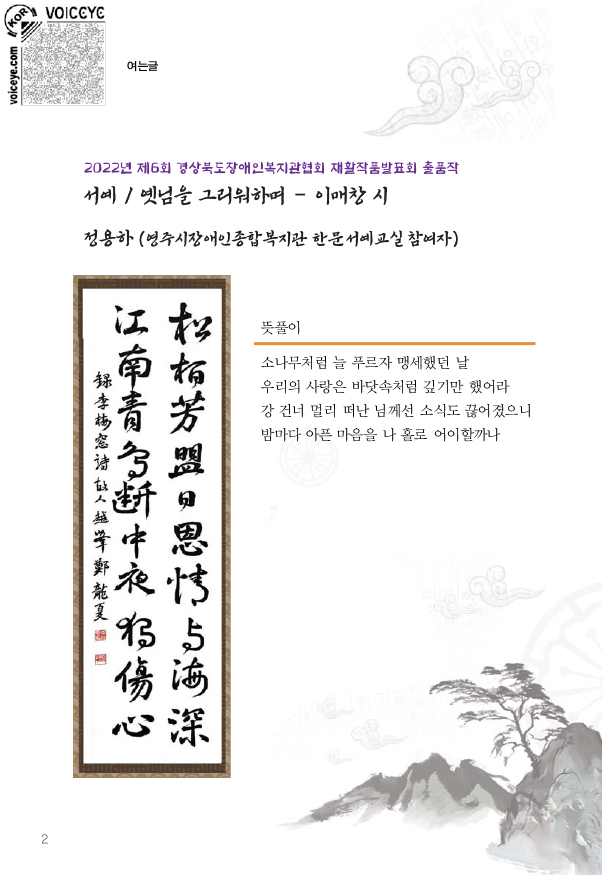 KOR
VOICEYE
voiceye.com
여는글
2022년 제6회 경상북도장애인복지관협회 재활작품발표회 출품작
서예 / 옛님을 그리워하며 - 이매창 시
정용하 (영주시장애인종합복지관 한문서예교실 참여자)
松栢芳盟日恩情与海深
江南青鸟断中夜独傷心
録李梅窓詩 故人 越峯 鄭龍夏
뜻풀이
소나무처럼 늘 푸르자 맹세했던 날
우리의 사랑은 바닷속처럼 깊기만 했어라
강 건너 멀리 떠난 님께선 소식도 끊어졌으니
밤마다 아픈 마음을 나 홀로 어이할까나
2